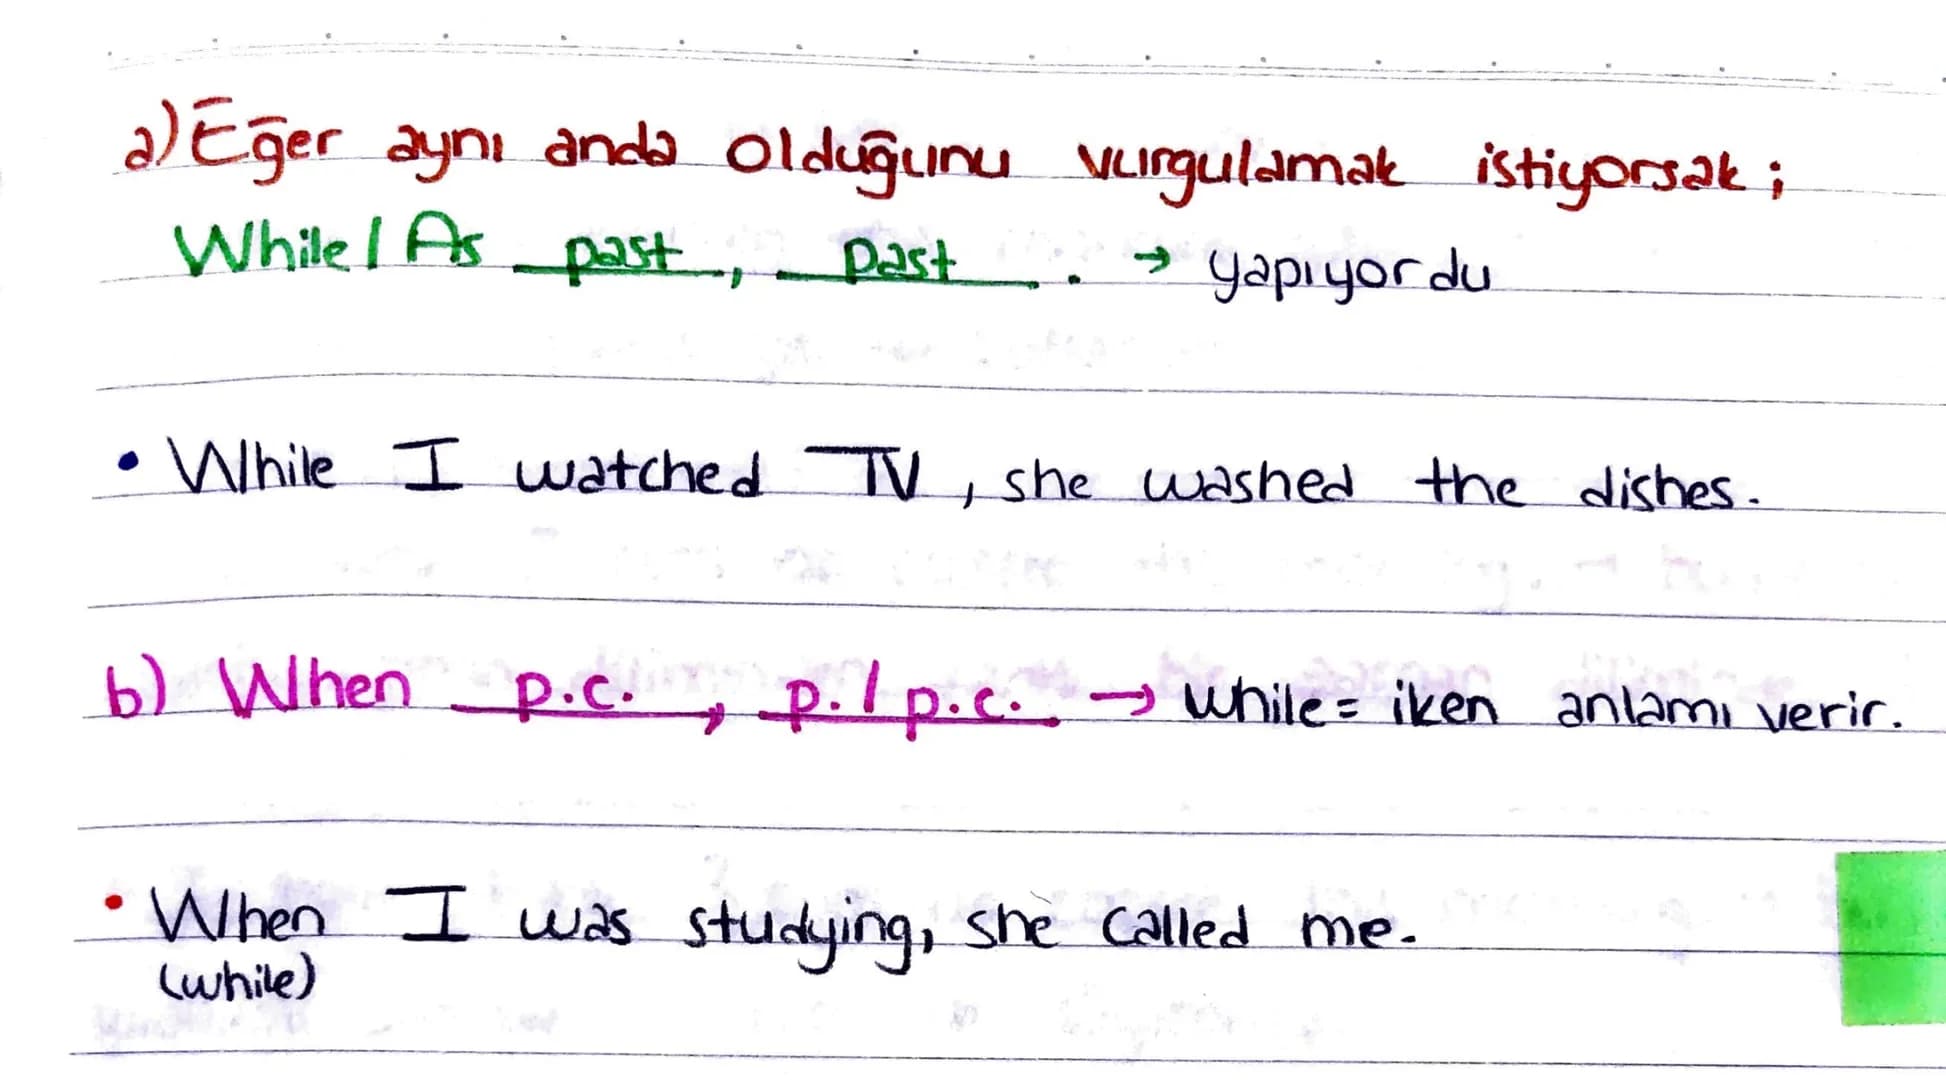 a) Eğer aynı anda olduğunu vurgulamak istiyorsak;
While / As past, past. → yapıyordu
• While I watched TV, she washed the dishes.
b) When p.c., p. / p.c. → while = iken anlamı verir.
• When I was studying, she called me.
(while)